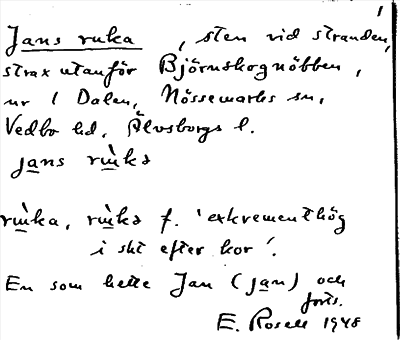 1
Jans ruka, sten vid stranden,
strax utanför Björnskognäbben,
nr 1 Dalen, Nössemarks sn,
Vedbo hd, Älvsborgs l.
jans rɯ̀kə
rɯ̀ka, rɯ̀kə f. 'exkrementhög
i sht efter kor'.
En som hette Jan (jan) och
forts.
E. Rosell 1948